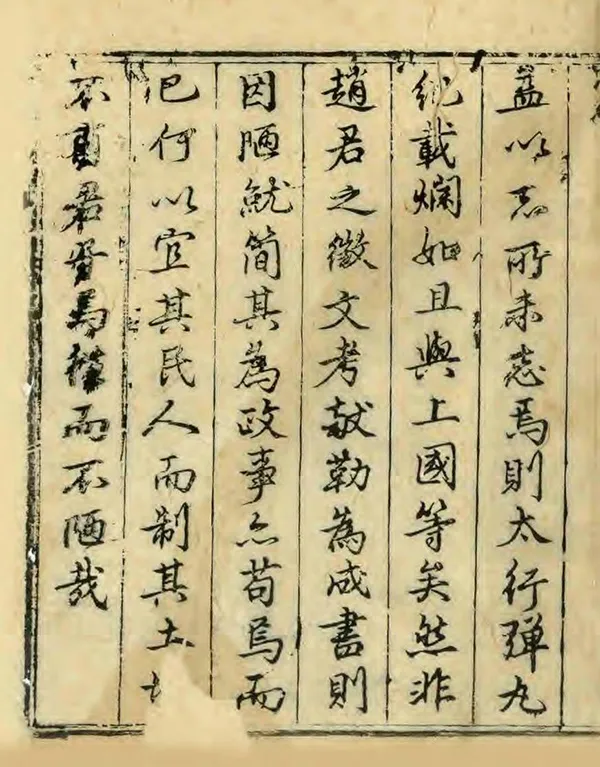 盖以志所未志焉則太行彈丸
紀載爛如且與上國等矣然非
趙君之徵文考献勒為成書則
因陋就简其為政事亦苟焉而
已何以宜其民人而制其土
不
君
馬
而不陋哉